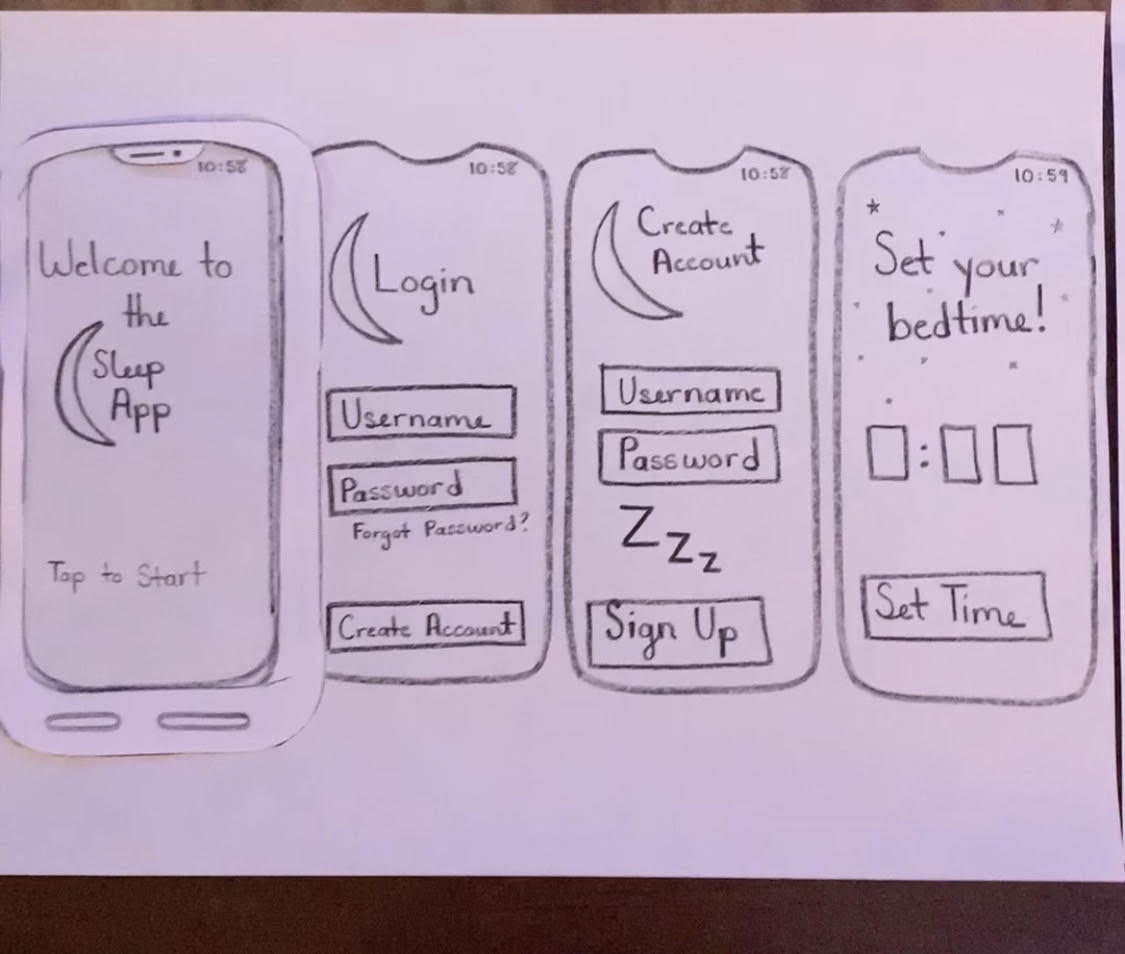 10:58
Welcome to
the
Sleep
App
Tap to Start
10:58
Login
Username
Password
Forgot Password?
Create Account
10:58
Create
Account
Username
Password
Zzz
Sign Up
10:59
Set your
bedtime!
:
Set Time